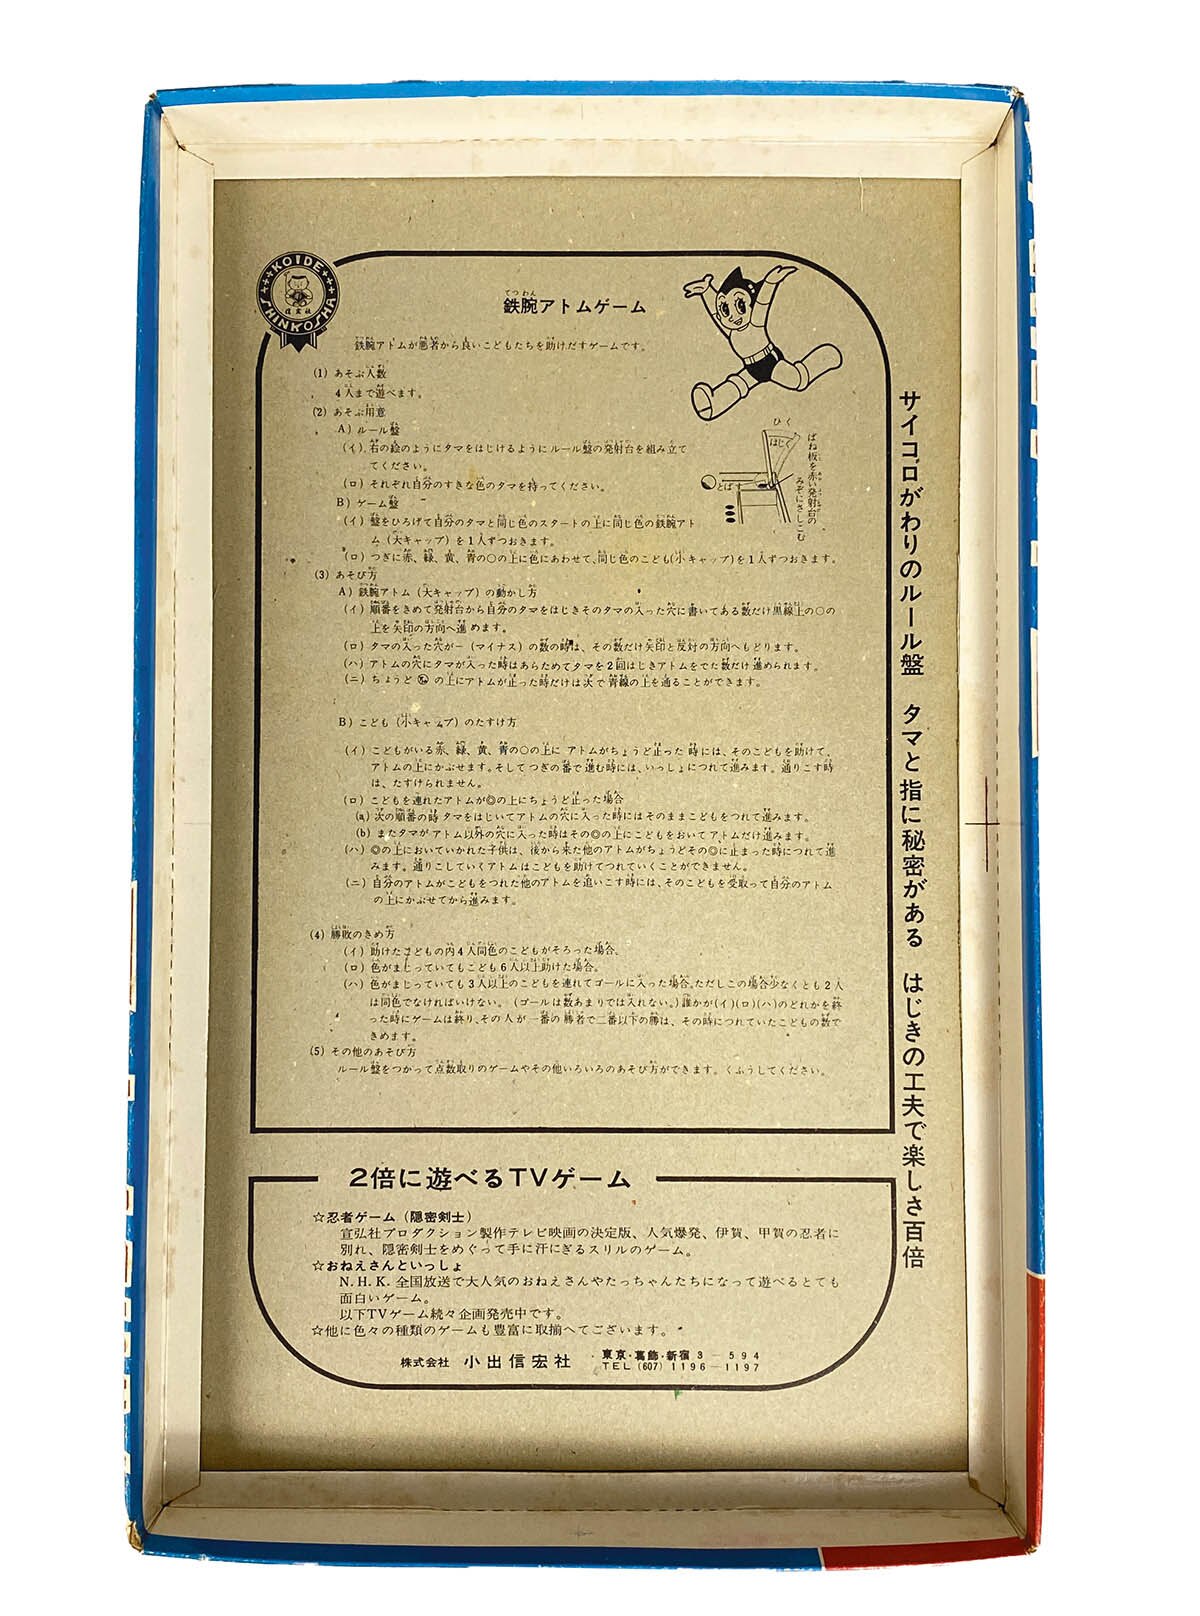 KOIDE
SHINKOSHA
信宏社
鉄腕アトムゲーム
鉄腕アトムが悪者から良いこどもたちを助けだすゲームです。
(1) あそぶ人数
4人まで遊べます。
(2) あそぶ用意
A) ルール盤
(イ) 右の絵のようにタマをはじけるようにルール盤の発射台を組み立て
てください。
(ロ) それぞれ自分のすきな色のタマを持ってください。
B) ゲーム盤
(イ) 盤をひろげて自分のタマと同じ色のスタートの上に同じ色の鉄腕アト
ム (大キャップ) を1人ずつおきます。
(ロ) つぎに赤、緑、黄、青の○の上に色にあわせて、同じ色のこども(小キャップ)を1人ずつおきます。
ひく
はじく
とばす
ばね板を赤い発射台の
みぞにさしこむ
(3) あそび方
A) 鉄腕アトム (大キャップ) の動かし方
(イ) 順番をきめて発射台から自分のタマをはじきそのタマの入った穴に書いてある数だけ黒線上の○の
上を矢印の方向へ進めます。
(ロ) タマの入った穴が− (マイナス) の数の時は、その数だけ矢印と反対の方向へもどります。
(ハ) アトムの穴にタマが入った時はあらためてタマを2回はじきアトムをでた数だけ進められます。
(ニ) ちょうど の上にアトムが止った時だけは次で青線の上を通ることができます。
B) こども (小キャップ) のたすけ方
(イ) こどもがいる赤、緑、黄、青の○の上に アトムがちょうど止った 時には、そのこどもを助けて、
アトムの上にかぶせます。そしてつぎの番で進む時には、いっしょにつれて進みます。通りこす時
は、たすけられません。
(ロ) こどもを連れたアトムが◎の上にちょうど止った場合
(a) 次の順番の時 タマをはじいてアトムの穴に入った時にはそのままこどもをつれて進みます。
(b) またタマが アトム以外の穴に入った時はその◎の上にこどもをおいてアトムだけ進みます。
(ハ) ◎の上においていかれた子供は、後から来た他のアトムがちょうどその◎に止まった時につれて進
みます。通りこしていくアトムはこどもを助けてつれていくことができません。
(ニ) 自分のアトムがこどもをつれた他のアトムを追いこす時には、そのこどもを受取って自分のアトム
の上にかぶせてから進みます。
(4) 勝敗のきめ方
(イ) 助けたこどもの内4人同色のこどもがそろった場合、
(ロ) 色がまじっていてもこども6人以上助けた場合。
(ハ) 色がまじっていても3人以上のこどもを連れてゴールに入った場合。ただしこの場合少なくとも2人
は同色でなければいけない。(ゴールは数あまりでは入れない。) 誰かが(イ)(ロ)(ハ)のどれかを終
った時にゲームは終り、その人が一番の勝者で二番以下の勝は、その時につれていたこどもの数で
きめます。
(5) その他のあそび方
ルール盤をつかって点数取りのゲームやその他いろいろのあそび方ができます。くふうしてください。
サイコロがわりのルール盤 タマと指に秘密がある はじきの工夫で楽しさ百倍
2倍に遊べるTVゲーム
☆忍者ゲーム (隠密剣士)
宣弘社プロダクション製作テレビ映画の決定版、人気爆発、伊賀、甲賀の忍者に
別れ、隠密剣士をめぐって手に汗にぎるスリルのゲーム。
☆おねえさんといっしょ
N.H.K. 全国放送で大人気のおねえさんやたっちゃんたちになって遊べるとても
面白いゲーム。
以下TVゲーム続々企画発売中です。
☆他に色々の種類のゲームも豊富に取揃へてございます。
株式会社 小出信宏社
東京・葛飾・新宿 3 — 594
TEL (607) 1196—1197